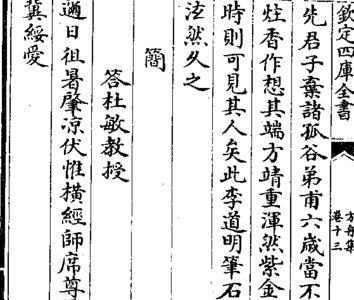 欽定四庫全書
方舟集
卷十三
先君子棄諸孤谷弟甫六歲當不
炷香作想其端方靖重渾然紫金
時則可見其人矣此李道明筆石
泫然久之
簡
答杜敏教授
邇日徂暑肇凉伏惟橫經師席尊
冀綏愛